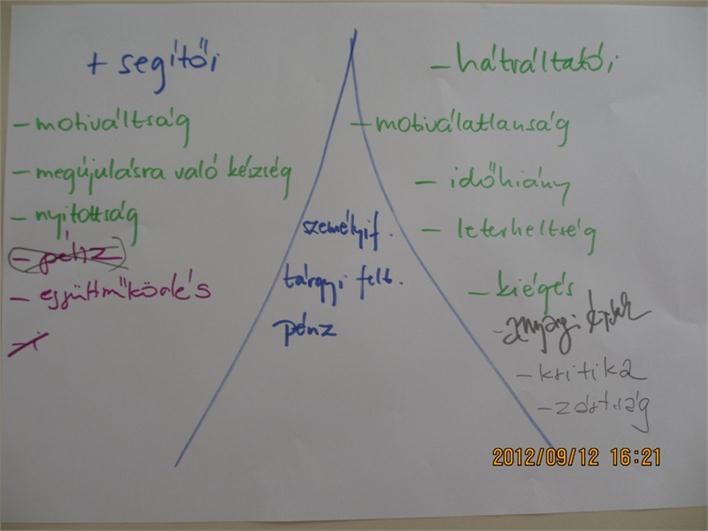 + segítői
- motiváltság
- megújulásra való készség
- nyitottság
- pénz
- együttműködés
személyif.
tárgyi felt.
pénz
- hátráltatói
- motiválatlanság
- időhiány
- leterheltség
- kiégés
- anyagi
- kritika
- zártság
2012/09/12 16:21